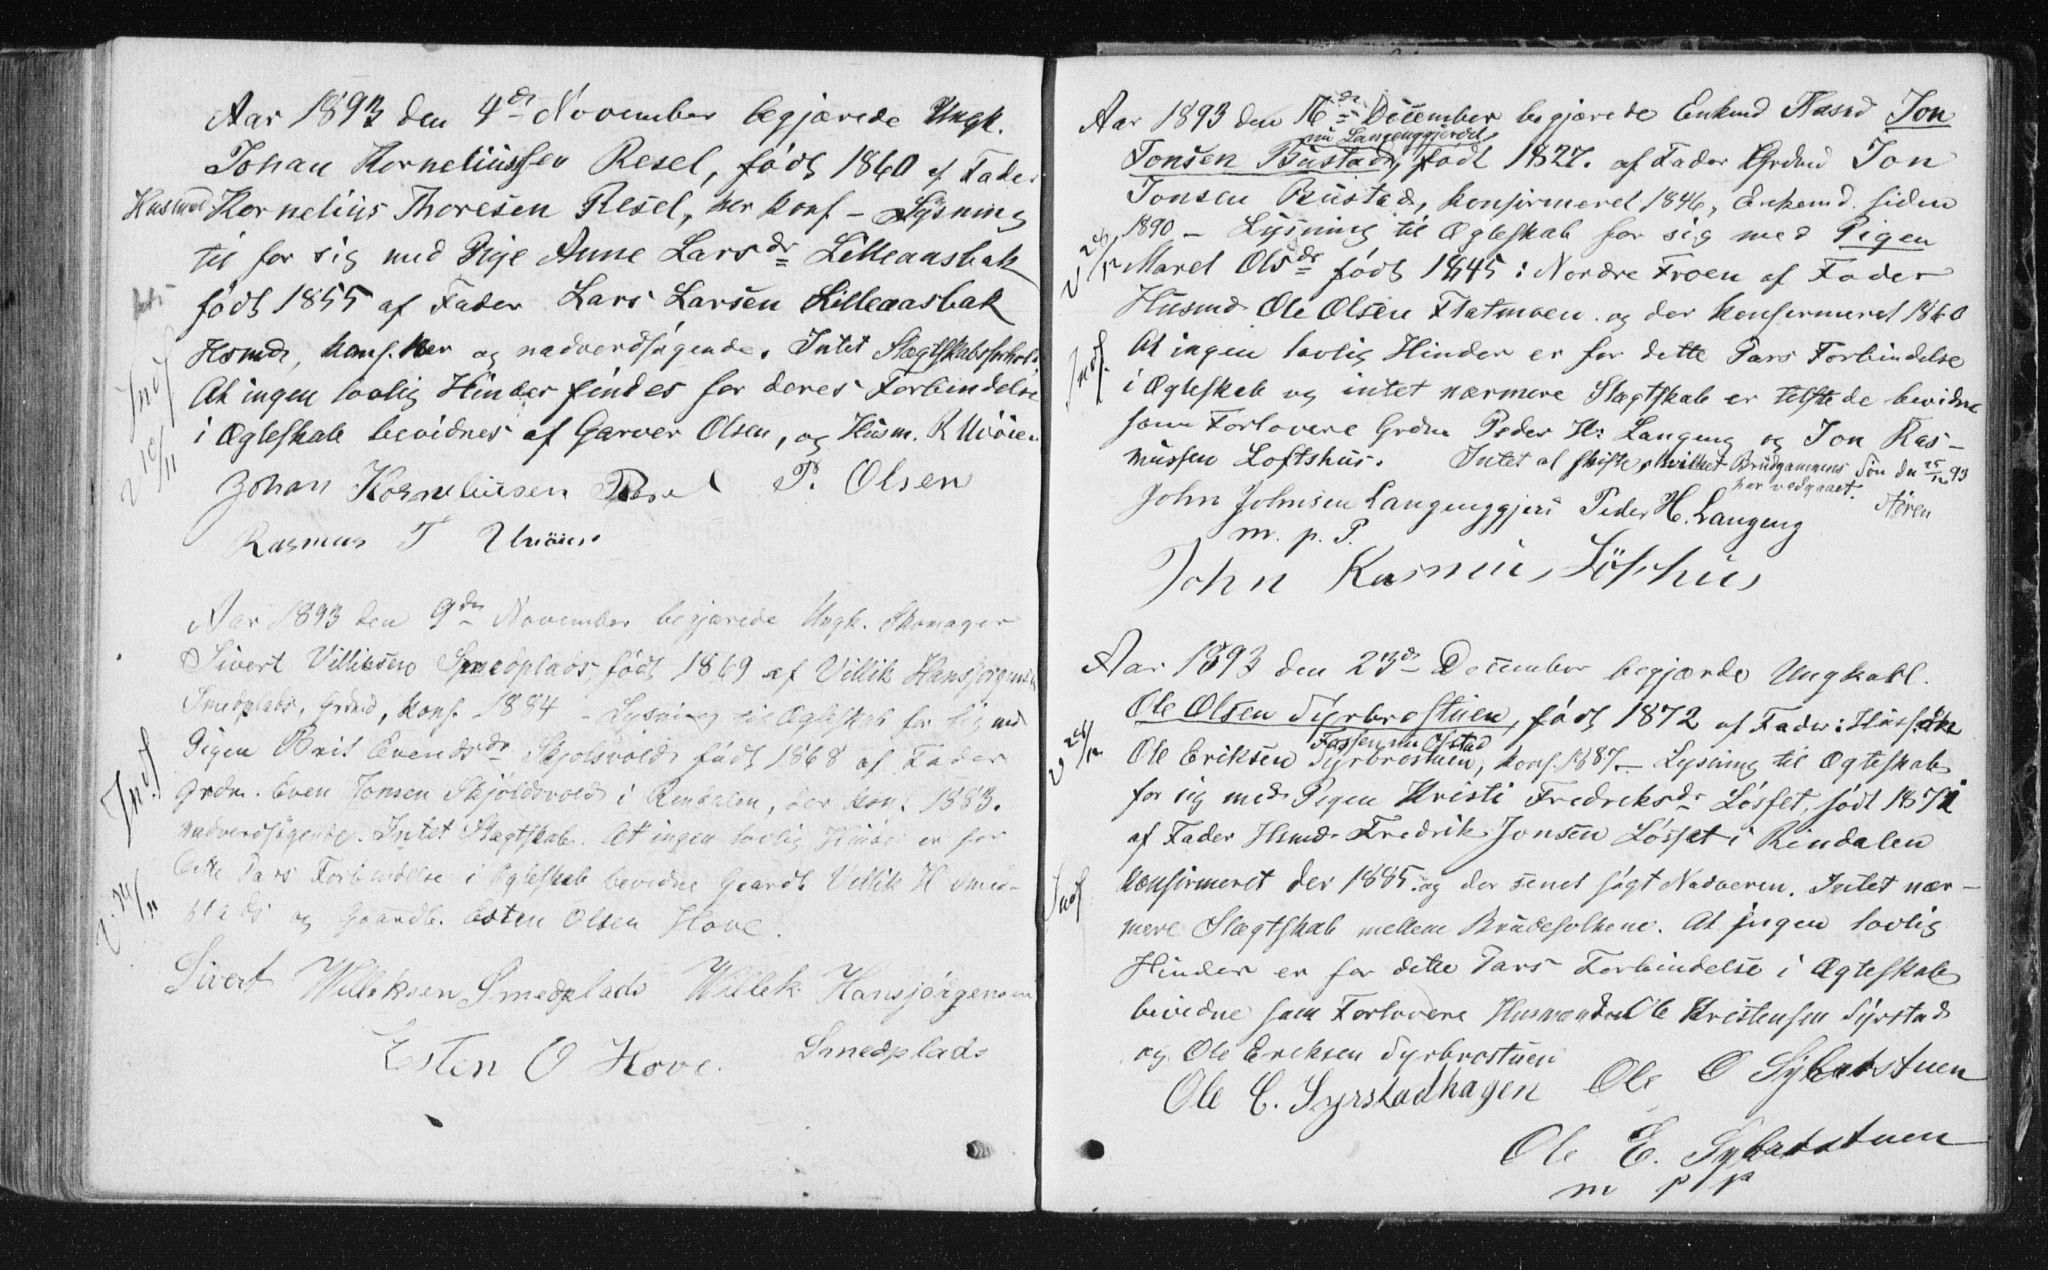 Aar 1893 den 4de November begjærede Ungk.
Johan Korneliussen Resel, född 1860 af Fader
Husmd Kornelius Thoresen Resel, her konf – Lysning
til for sig med Pige Anne Larsdr Lilleaasbak
född 1855 af Fader Lars Larsen Lilleaasbak
Hsmd, konf. her og nadverdsøgende. Intet Slægtskabsforhold.
At ingen lovlig Hinder findes for deres Forbindelse
i Ægteskab bevidnes af Garver Olsen, og Husm. R Uvöien
Indf
v 10/11
Johan Korneliusen Resel P. Olsen
Rasmus T Uvöien
Aar 1893 den 9de November begjærede Ungk. Skomager
Sivert Villiksen Smedplads, född 1869 af Villik Hansjörgensen
Smedplads, Grdmd, konf. 1884 – Lysning til Ægteskab for sig med
Pigen Brit Evensdr Skjolsvold född 1868 af Fader
Grdm. Even Jonsen Skjöldsvold i Rindalen, der konf. 1883.
nadverdsøgende. Intet Slægtskab. At ingen lovlig Hinder er for
dette Pars Forbindelse i Ægteskab bevidne Gaardb. Villik H Smed-
plads og Gaardb. Esten Olsen Hove.
Indf
Sivert Willeksen Smedplads Willek Hansjørgensen
Smedplads
Esten O Hove.
Aar 1893 den 16de December begjærede Enkmd Husmd Jon
nu Langenggjerdet
Jonsen Bustad, född 1827. af Fader Grdmd Jon
Jonsen Bustad, konfirmeret 1846, Enkemd. siden
1890 – Lysning til Ægteskab for sig med Pigen
v 24/12
Maret Olsdr född 1845 i Nordre Froen af Fader
Husmd Ole Olsen Flatmoen og der konfirmeret 1860
At ingen lovlig Hinder er for dette Pars Forbindelse
Indf.
i Ægteskab og intet nærmere Slægtskab er tilstede bevidne
som Forlovere Grdm Peder H: Langeng og Jon Ras-
mussen Loftshus. Intet at skifte, hvilket Brudgommens Søn den 25/12 93
har vedgaaet.
John Johnsen Langenggjerd Peder H. Langeng
m. p. P.
John Rasmus Löfshus
Aar 1893 den 23de December begjærde Ungkarl.
Ole Olsen Syrbrostuen, född 1872 af Fader:
Ole Eriksen Syrbrostuen, konf. 1887 – Lysning til Ægteskab
v 24/12
for sig med Pigen Kristi Fredriksdr Løsset, född 1872
af Fader Hsmd Fredrik Jonsen Løsset i Rindalen
konfirmeret der 1885 og der senest søgt Nadveren. Intet nær-
Indf
mere Slægtskab mellem Brudefolkene. At ingen lovlig
Hinder er for dette Pars Forbindelse i Ægteskab
bevidne som Forlovere Husmændene Ole Kristensen Syrstad
og Ole Eriksen Syrbrostuen
Ole C. Syrstadhagen Ole O Sybrotstuen
Ole E. Sybrotstuen
m p p